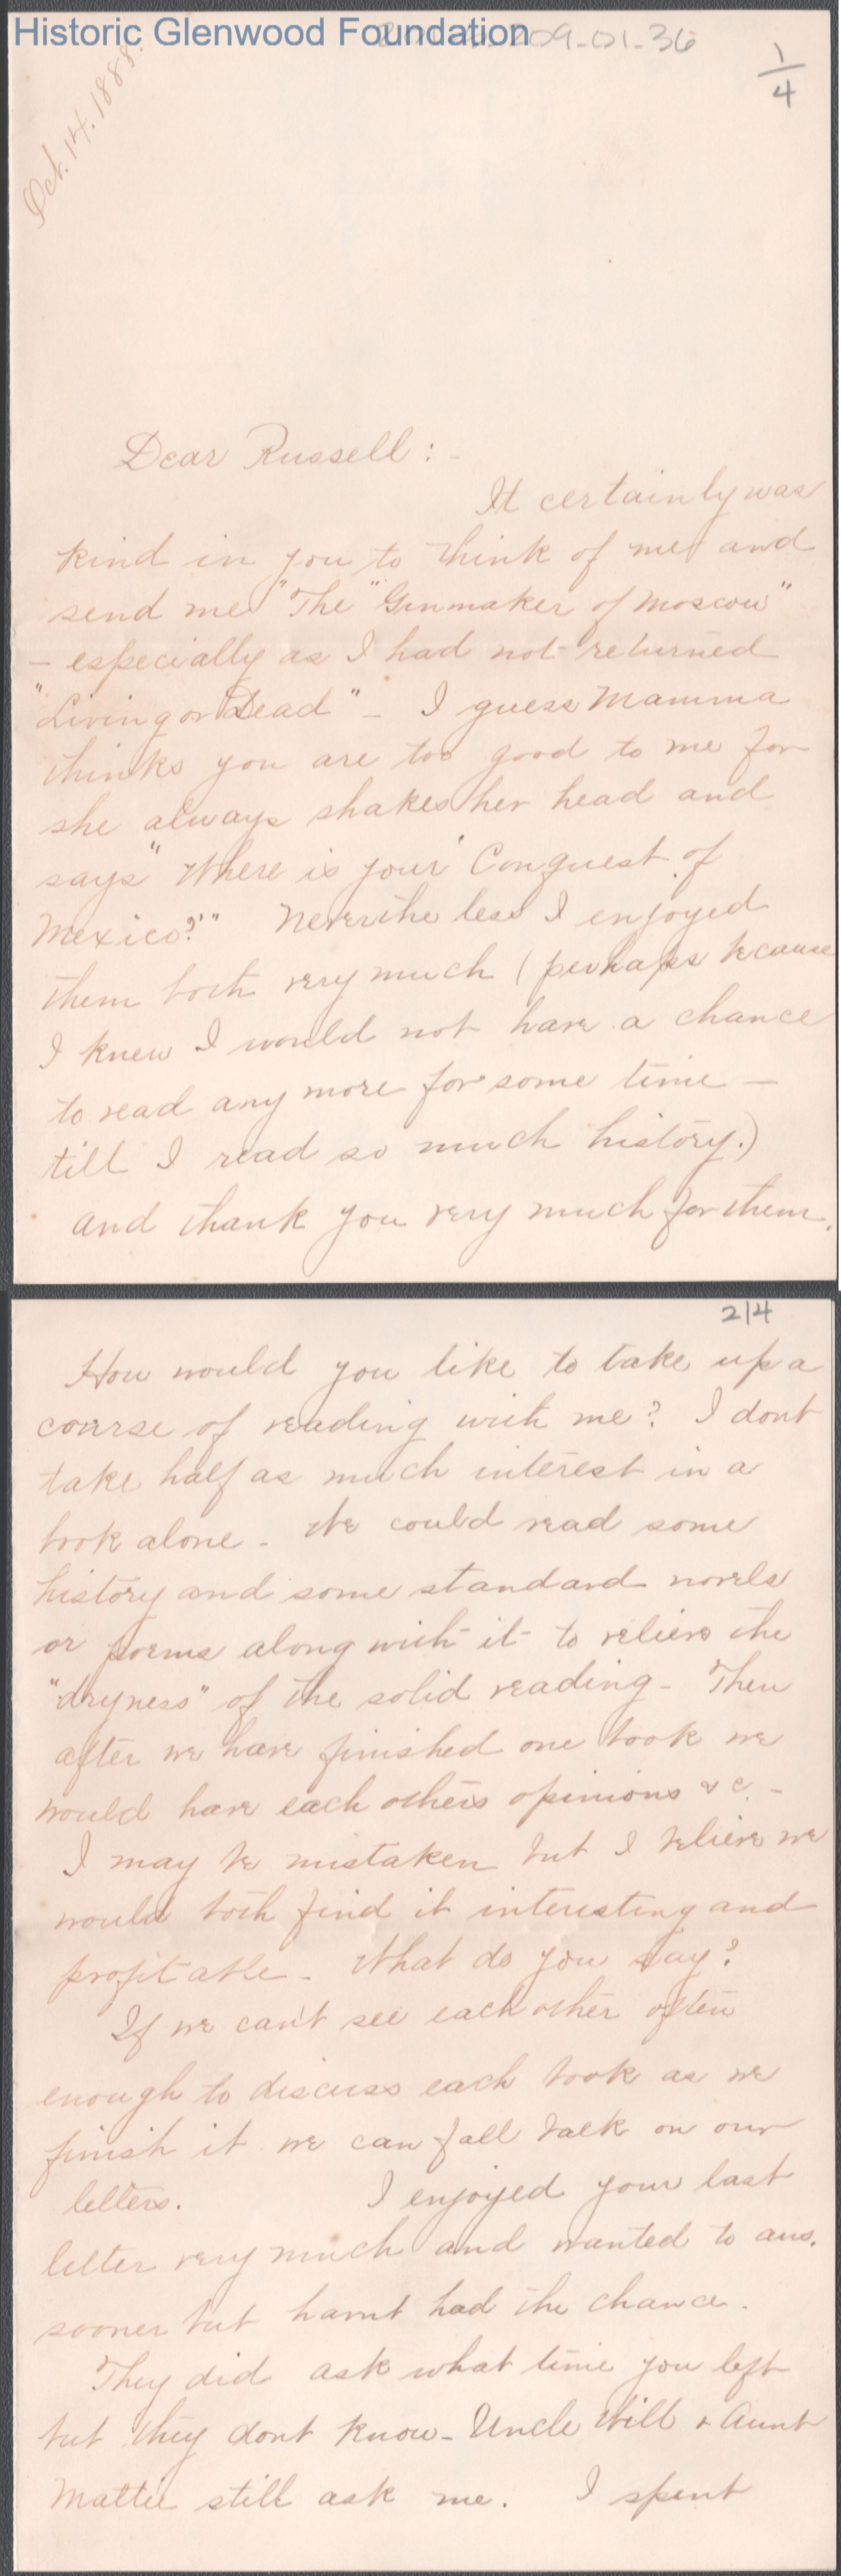 Historic Glenwood Foundation
209-01-36
1/4
Oct. 14. 1888.
Dear Russell:-
It certainly was
kind in you to think of me and
send me "The "Gunmaker of Moscow"
- especially as I had not returned
"Living or Dead" - I guess Mamma
thinks you are too good to me for
she always shakes her head and
says "Where is your 'Conquest of
Mexico?'" Neverthe less I enjoyed
them both very much (perhaps because
I knew I would not have a chance
to read any more for some time -
till I read so much history.)
and thank you very much for them.
2/4
How would you like to take up a
course of reading with me? I dont
take half as much interest in a
book alone - We could read some
history and some standard novels
or poems along with it to relieve the
"dryness" of the solid reading - Then
after we have finished one book we
would have each others opinions &c. -
I may be mistaken but I believe we
would both find it interesting and
profitable - What do you say?
If we can't see each other often
enough to discuss each book as we
finish it we can fall back on our
letters. I enjoyed your last
letter very much and wanted to ans.
sooner but havnt had the chance.
They did ask what time you left
but they dont know - Uncle Will & Aunt
Mattie still ask me. I spent